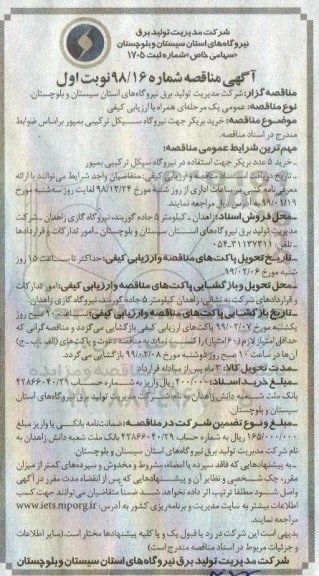 شرکت مدیریت تولید برق
نیروگاه‌های استان سیستان و بلوچستان
«سهامی خاص» شماره ثبت ۱۷۰۵
آگهی مناقصه شماره ۹۸/۱۶ نوبت اول
مناقصه گزار: شرکت مدیریت تولید برق نیروگاه‌های استان سیستان و بلوچستان.
نوع مناقصه: عمومی یک مرحله‌ای همراه با ارزیابی کیفی
موضوع مناقصه: خرید بریکر جهت نیروگاه سیکل ترکیبی بمپور براساس ضوابط
مندرج در اسناد مناقصه.
مهم‌ترین شرایط عمومی مناقصه:
ـ خرید ۵ عدد بریکر جهت استفاده در نیروگاه سیکل ترکیبی بمپور
ـ تاریخ دریافت اسناد مناقصه و ارزیابی کیفی: متقاضیان واجد شرایط می‌توانند با ارائه
معرفی‌نامه کتبی در ساعات اداری از روز شنبه مورخ ۹۸/۱۲/۲۴ لغایت روز سه‌شنبه مورخ
۹۹/۰۱/۱۹ به آدرس ذیل مراجعه نمایند.
ـ محل فروش اسناد: زاهدان ـ کیلومتر ۵ جاده گوربند، نیروگاه گازی زاهدان ـ شرکت
مدیریت تولید برق نیروگاه‌های استان سیستان و بلوچستان ـ امور تدارکات و قراردادها
ـ تلفن: ۳۱۱۳۷۳۱۱-۰۵۴
ـ تاریخ تحویل پاکت‌های مناقصه و ارزیابی کیفی: حداکثر تا ساعت ۱۵ روز
شنبه مورخ ۹۹/۰۲/۰۶
ـ محل تحویل و بازگشایی پاکت‌های مناقصه و ارزیابی کیفی: امور تدارکات
و قراردادهای شرکت به نشانی: زاهدان کیلومتر ۵ جاده گوربند، نیروگاه گازی زاهدان
ـ تاریخ بازگشایی پاکت‌های مناقصه و ارزیابی کیفی: ساعت ۹ صبح روز
یکشنبه مورخ ۹۹/۰۲/۰۷ پاکت‌های ارزیابی کیفی بازگشایی می‌گردد و مناقصه‌گرانی که
حداقل امتیاز لازم را کسب نماید به مناقصه دعوت و پاکت‌های (الف ـ ب ـ ج)
آن‌ها در ساعت ۱۰ صبح روز دوشنبه مورخ ۹۹/۰۲/۰۸ بازگشایی می‌گردد.
ـ مدت تحویل کالا: ۳ ماه پس از مبادله قرارداد
ـ مبلغ خرید اسناد: ۴۰۰/۰۰۰ ریال واریز به شماره حساب ۴۲۸۶۶۰۴۰/۲۹
بانک ملت شعبه دانش زاهدان به نام شرکت مدیریت تولید برق نیروگاه‌های استان
سیستان و بلوچستان.
ـ مبلغ و نوع تضمین شرکت در مناقصه: ضمانت‌نامه بانکی یا واریز مبلغ
۱۶۵/۰۰۰/۰۰۰ ریال به شماره حساب ۴۲۸۶۶۰۴۰/۲۹ بانک ملت شعبه دانش زاهدان به
نام شرکت مدیریت تولید برق نیروگاه‌های استان سیستان و بلوچستان
ـ به پیشنهادهایی که فاقد سپرده یا امضاء، مشروط و مخدوش و سپرده‌های کمتر از میزان
مقرر، چک شخصی و نظایر آن و پیشنهادهایی که پس از انقضاء مدت مقرر در آگهی
واصل شود مطلقا ترتیب اثر داده نخواهد شد. ضمنا متقاضیان می‌توانند جهت کسب
اطلاعات بیشتر به سایت مدیریت و برنامه‌ریزی کشور به آدرس: www.iets.mporg.ir
مراجعه نمایند.
بدیهی است این شرکت در رد یا قبول یک و یا کلیه پیشنهادها مختار است. (سایر اطلاعات و
و جزئیات مربوط در اسناد مناقصه مندرج است)
شرکت مدیریت تولید برق نیروگاه‌های استان سیستان و بلوچستان